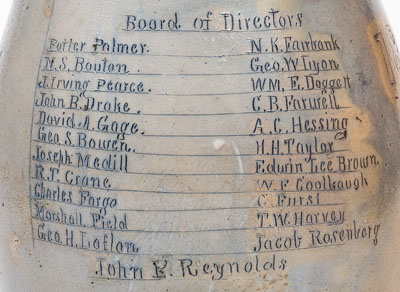 Board of Directors
Potter Palmer. N.K. Fairbank
N.S. Bouton. Geo. W. Lyon
J. Irving Pearce. WM. E. Doggett
John B. Drake. C.B. Farwell
David A. Gage. A.C. Hessing
Geo. S. Bowen. H.H. Taylor
Joseph Medill Edwin Lee Brown.
R.T. Crane W.F. Coolbaugh
Charles Fargo C. Furst
Marshall Field T.W. Harvey
Geo. H. Laflan Jacob Rosenberg
John F. Reynolds